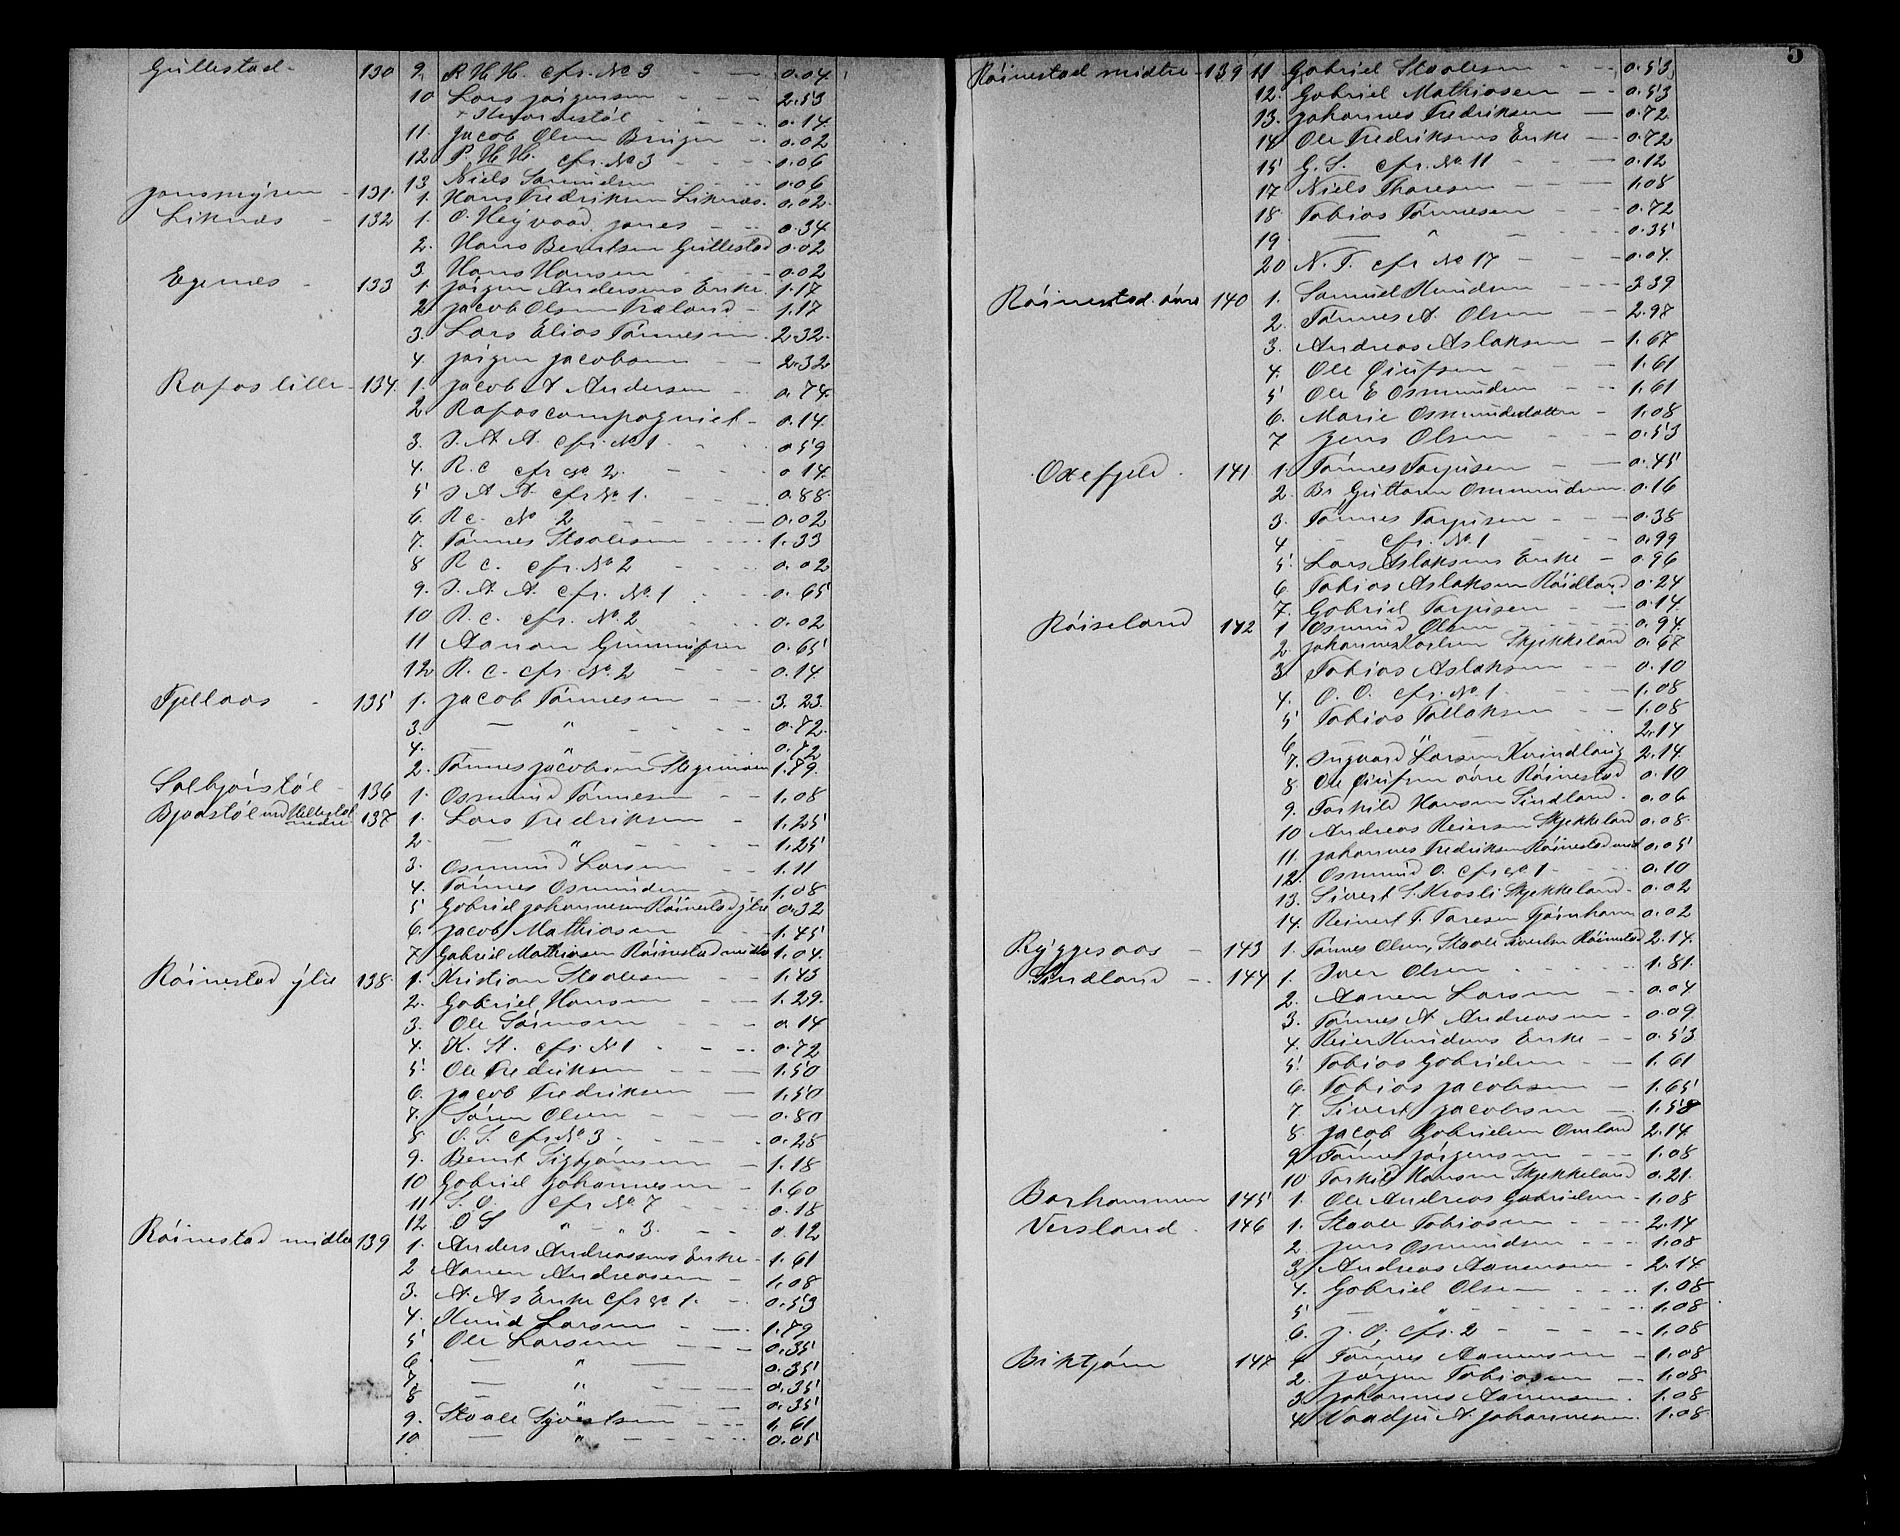 Gullestad - 130 9. P. H. H. cfr. No 3 - - 0.04
10 Lars Jørgensen - - - 2.53
+ - - - 0.14
11. Jacob Olsen - - 0.02
12 P. H. H. cfr. No 3 - - - 0.06
13 Niels Samuelsen - - - 0.06
Jonsmyren - 131. 1. Hans Fredriksen Liknæs. 0.02
Liknæs - 132 1. O. Jones - - 0.34
2. Hans Berntsen Gullestad 0.02
3 Hans Hansen - - - 0.02
Egenæs - 133 1. Jørgen Andersens Enke. 1.17
2 Jacob Olsen Træland - 1.17
3. Lars Elias Tønnesen. 2.32.
4. Jørgen Jacobsen - - 2.32
Rafos lille - 134. 1. Jacob A Andersen - 0.74.
2. Rafoscompagniet - 0.14.
3. J. A. A. cfr. No 1. - - 0.59
4. R. C cfr No 2. - - 0.14.
5 J A A. cfr. No 1. - - 0.88.
6. R c. No 2 - - - - 0.02
7. Tønnes Staalesen - - - 1.33
8 R c. cfr. No 2 - - - 0.02
9. J. A. A. cfr. No. 1 - - 0.65
10 R. c. cfr. No. 2 - - - 0.02
11 Aanon Gunnufsen 0.65
12 R. c. cfr. No. 2 - - - 0.14
Fjellaas - 135 1. Jacob Tønnesen - - 3.23.
3. — " - - - 0.72.
4. — " - - - 0.72
2. Tønnes Jacobsen 1.79.
Solbjørstøl - 136 1. Osmund Tønnesen - - 1.08
Bjaastøl med 137 1. Lars Fredriksen - 1.25
2. — " - - - - 1.25
3. Osmund Larsen - - 1.11
4. Tønnes Osmundsen - - 1.08
5 Gabriel Johannesen Røinestad ytre 0.32
6. Jacob Mathiasen - - 1.45
7 Gabriel Mathiasen Røinestad midtre 1.04.
Røinestad ytre 138. 1. Kristian Staalesen - - 1.43
2. Gabriel Hansen - - - 1.29.
3. Ole Sørensen - - - 0.14
4. K. St. cfr. No 1 - - - 0.72
5. Ole Fredriksen - - - 1.50
6. Jacob Fredriksen — 1.50
7. Søren Olsen - - - 0.80
8 O. S. cfr No 3. - - - - 0.28
9. Bernt Sigbjørnsen - - 1.18
10 Gabriel Johannesen - - 1.60
11 S. O. cfr No. 7 - - - 0.18
12 O S " - " 3. - - 0.12
Røinestad midtre 139 1. Anders Andreassens Enke - 1.61
2 Aanen Andreasen - 1.08
3. A. As Enke cfr No 1. - - 0.53
4. Knud Larsen - - 1.79
5 Ole Larsen - - - 0.35
6 — " — 0.35
7. — " - - - 0.35
8 — " - - - 0.35
9. Staale Syvertsen - - 1.61
10. — " - - - - 0.05
5
Røinestad midtre - 139 11 Gabriel Staalesen - - 0.53
12. Gabriel Mathiasen - - 0.53
13. Johannes Fredriksen — 0.72.
14 Ole Fredriksens Enke - - 0.72
15 G. S. cfr. No 11 - - - 0.12
17 Niels Thoresen - - - 1.08
18 Tobias Tønnesen - - - 0.72
19 — " - - - 0.35
20 N. T. cfr No 17 - - - 0.04.
Røinestad øvre 140 1. Samuel Knudsen - - - - 3.39
2. Tønnes A. Olsen - - - 2.97
3. Andreas Aslaksen - 1.67
4. Ole Giufsen - - - 1.61
5 Ole E Osmundsen - - - 1.61
6. Marie Osmundsdatter - 1.08
7 Jens Olsen - - - 0.53
Oxefjeld. 141 1. Tønnes Torjusen - - 0.45
2. Br Guttorm Osmundsen 0.16
3. Tønnes Torjusen - - - 0.38
4 - - cfr. No 1 - - - 0.99
5. Lars Aslaksens Enke - 0.96
6 Tobias Aslaksen Røidland 0.24
7. Gabriel Torjusen - - - 0.14.
Røiseland 142 1 Osmund Olsen - - - - 0.94.
2. Johannes Skjekkeland 0.67
3 Tobias Aslaksen - - 0.10
4. O. O. cfr. No 1. - - - 1.08
5 Tobias Tollaksen - - 1.08
6 — " - - - 2.14
7. Ingvard Larsen Kvindlaug 2.14.
8 Ole Giufsen øvre Røinestad 0.10
9. Torkild Hansen Sindland. 0.06
10 Andreas Reiersen Skjekkeland 0.08
11. Johannes Fredriksen Røinestad mid 0.05
12. Osmund O. cfr No 1 - - 0.10
13. Sivert S. Skjekkeland. 0.02
14. Reinert T. Taresen 0.02
Ryggesaas - 143 1. Tønnes Olsen, Staale Sivertsen Røinestad 2.14.
Sindland - - 144 1. Iver Olsen - - - - 1.81.
2. Aanen Larsen - - 0.04
3. Tønnes A. Andreasen - 0.09
4. Reier Knudsens Enke - - 0.53
5. Tobias Gabrielsen - - 1.61
6. Tobias Jacobsen - - 1.65
7. Sivert Jacobsen - - 1.58
8. Jacob Gabrielsen Omland 2.14
9 Tønnes Jørgensen - - - 1.08
10 Torkild Hansen Skjekkeland 0.21.
Barhammen 145 1. Ole Andreas Gabrielsen - 1.08
Versland. 146 1. Staale Tobiasen - - - 2.14
2. Jens Osmundsen - - - 1.08
3 Andreas Aanensen - - 2.14
4. Gabriel Olsen - - - - 1.08
5 — " - - - - 1.08
6. J. O. cfr. 2 - - - - 1.08
Biktjøn 147 1 Tønnes Aanensen - - 1.08
2. Jørgen Tobiasen - - 1.08
3 Johannes Aanensen. - 1.08
4 A. Johannesen. 1.08